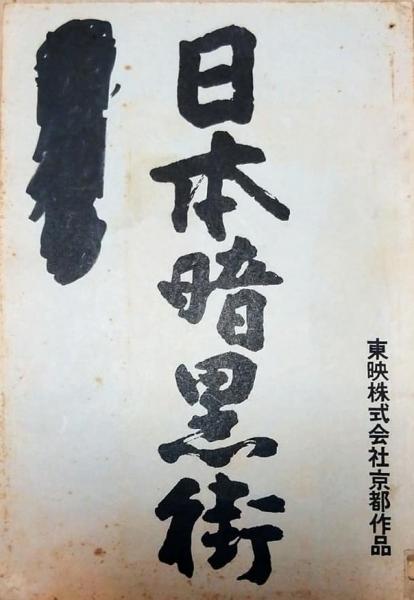 東映株式会社京都作品
日本暗黒街